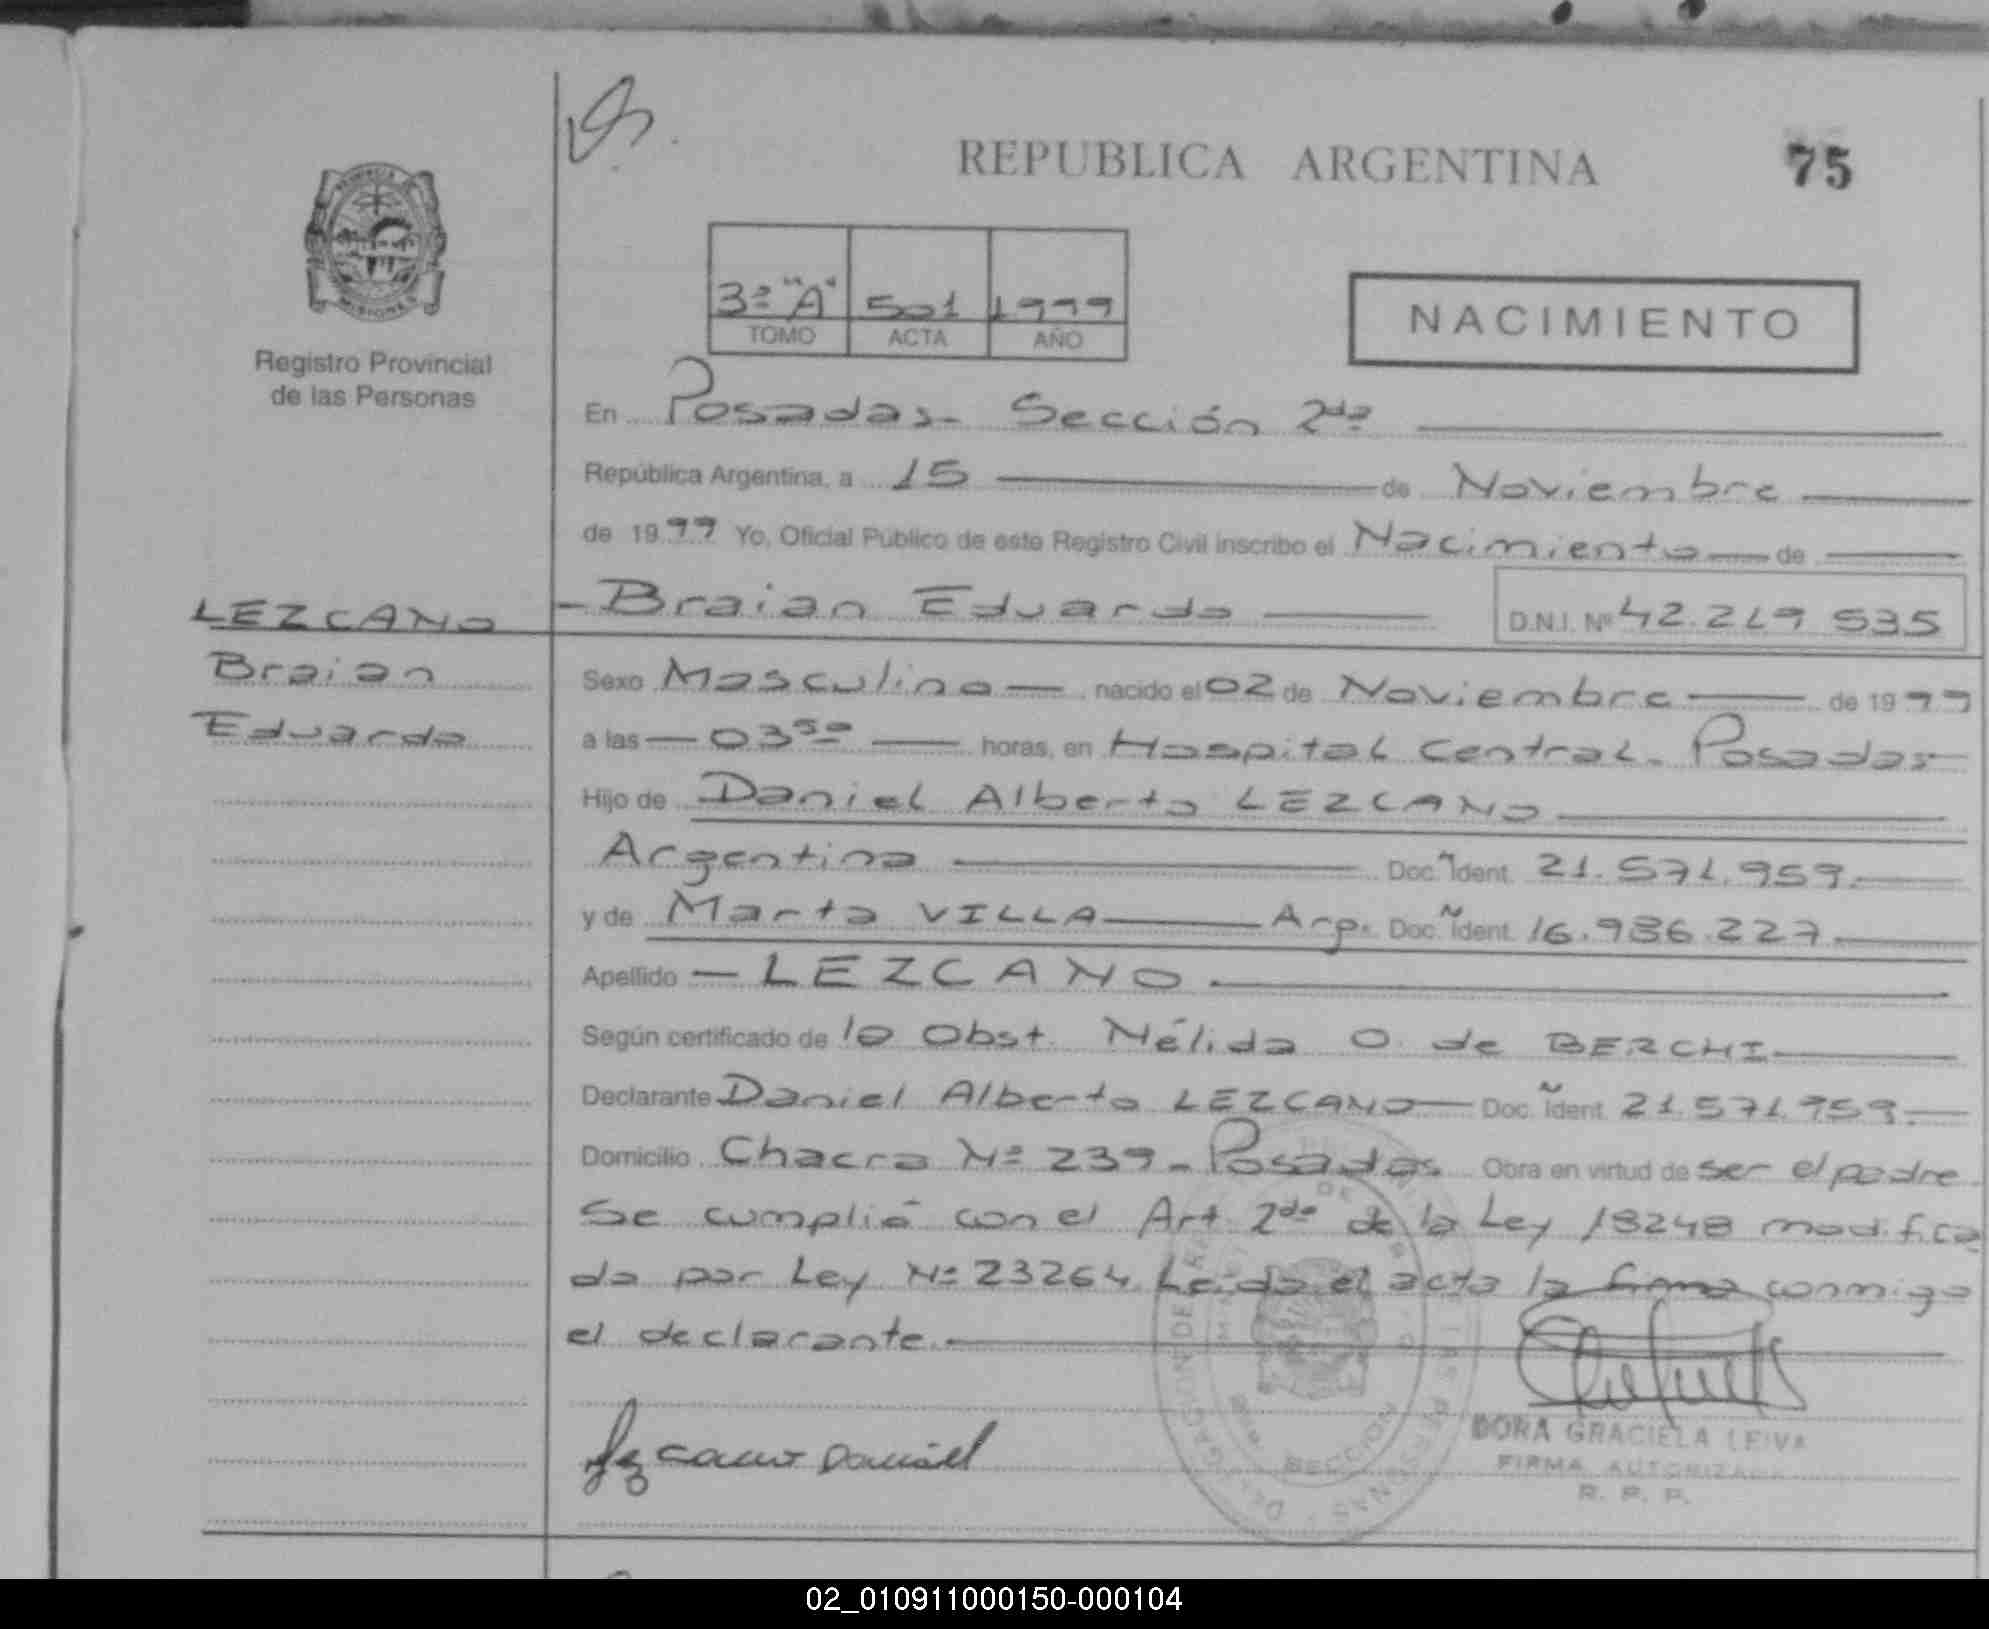 REPUBLICA ARGENTINA
75
PROVINCIA DE
MISIONES
Registro Provincial
de las Personas
3º "A" 501 1999
TOMO ACTA AÑO
NACIMIENTO
En Posadas - Sección 2da
República Argentina, a 15 de Noviembre
de 1999 Yo, Oficial Público de este Registro Civil inscribo el Nacimiento de
Braian Eduardo D.N.I. Nº 42.219 535
LEZCANO
Braian
Eduardo
Sexo Masculino nacido el 02 de Noviembre de 1999
a las 03 50 horas, en Hospital Central - Posadas
Hijo de Daniel Alberto LEZCANO
Argentina Doc. Ident. 21.571.959.
y de Marta VILLA Arg. Doc. Ident. 16.986.227
Apellido LEZCANO
Según certificado de la Obst. Nélida O. de BERCHI
Declarante Daniel Alberto LEZCANO Doc. Ident. 21.571.959.
Domicilio Chacra Nº 239 - Posadas. Obra en virtud de ser el padre
Se cumplió con el Art 2do de la Ley 18248 modifica
da por Ley Nº 23264. Leída el acta la firma conmigo
el declarante.
Lezcano Daniel
SECCION
DORA GRACIELA LEIVA
FIRMA AUTORIZADA
R. P. P.
02_010911000150-000104